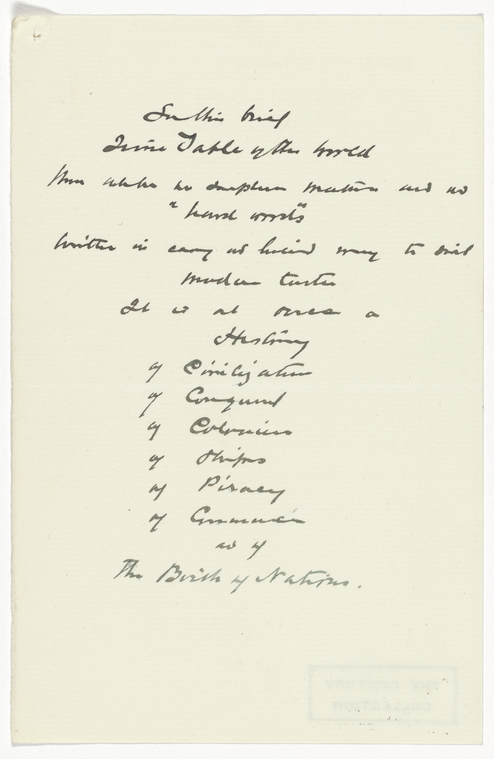 In this brief
Time Table of the World
there is no matter and no
"hard words"
written in easy and lucid way to suit
modern tastes
It is at once a
History
of Civilization
of Conquest
of Colonies
of Ships
of Piracy
of Commerce
and of
The Birth of Nations.